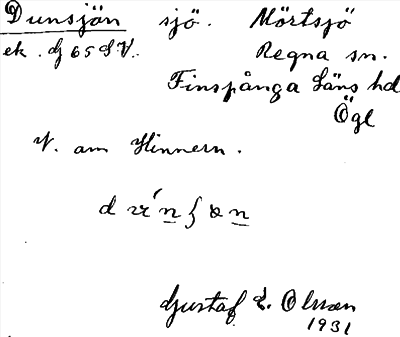 Dunsjön sjö. Mörtsjö
ek. bl 65 S V. Regna sn.
Finspånga Läns hd
Ögl
V. om Hinnern.
Gustaf E. Olsson
1931